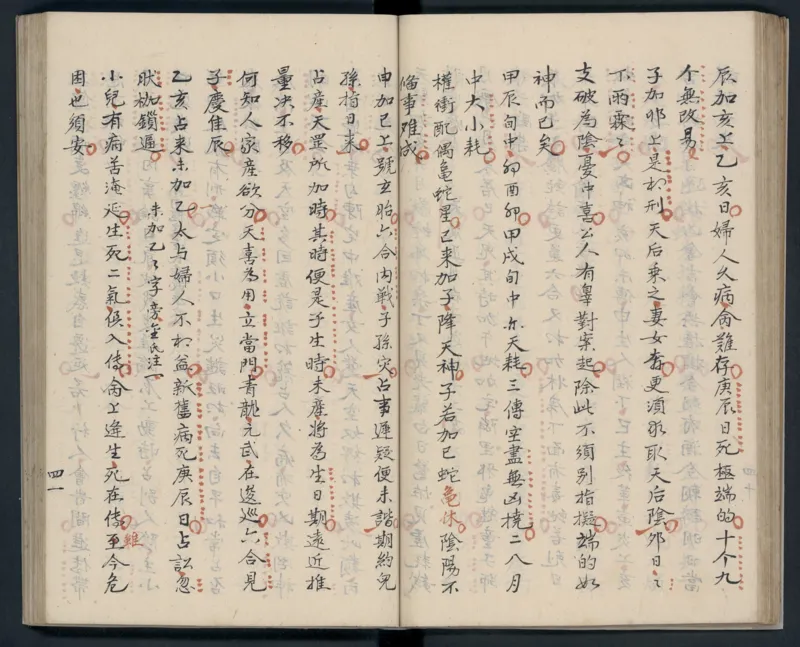 辰加亥上乙亥日婦人久病禽難存庚辰日死極端的十个九
个無改易
子加卯上是相刑天后乗之妻女奮更須求取天后陰外日日
下雨霖霖
支破為陰憂中喜公人有辜對案起除此不須別指擬端的如
神而已矣
甲辰旬中卯酉卯甲戌旬中亦天耗三傳空盡無凶撓二八月
中大小耗
權衡配偶亀蛇星已来加子降天神子若加巳蛇亀休陰陽不
偹事难成
申加巳上號互胎六合内戦子孫灾占事遲疑便未諧期約兒
孫指日来
占産天罡所加時其時便是子生時未産將為生日期遠近推
量决不移
何知人家産欲分天喜為用立當門青龍元武在逡巡六合見
子慶佳辰
乙亥占来未加乙太占婦人不相益新舊病死庚辰日占訟忽
肰枷鎖逼
未加乙乙字旁全氏注一
小兒有病苦淹延生死二氣俱入传禽上逢生死在传至今危
困也須安
難
四一